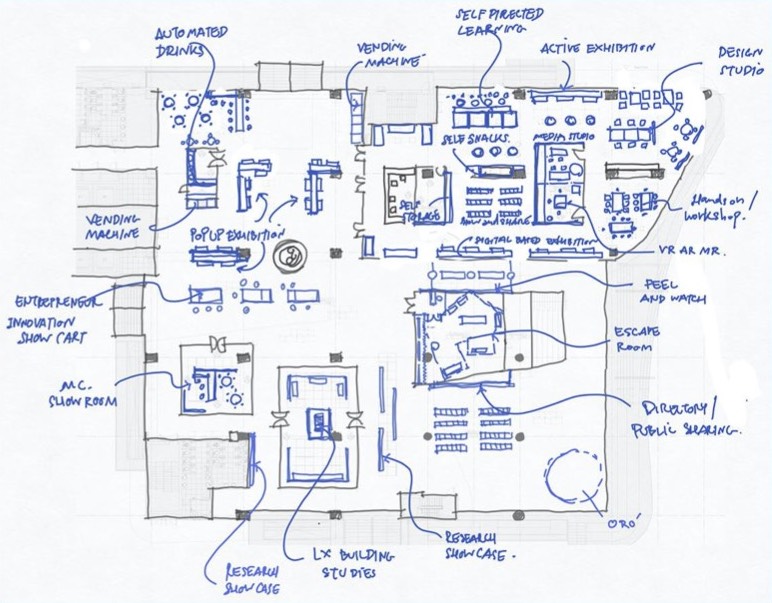 SELF DIRECTED
LEARNING
AUTOMATED
DRINKS
VENDING
MACHINE
ACTIVE EXHIBITION
DESIGN
STUDIO
SELF SNACKS.
MEDIA STUDIO
SELF
STORAGE
Hands on/
workshop.
VENDING
MACHINE
POPUP EXHIBITION
DIGITAL BASED EXHIBITION
VR AR MR.
FEEL
AND WATCH
ENTREPRENEUR
INNOVATION
SHOW CART
ESCAPE
ROOM
M.C.
SHOWROOM
DIRECTORY/
PUBLIC SHARING.
RESEARCH
SHOWCASE
LX BUILDING
STUDIES
RESEARCH
SHOWCASE.